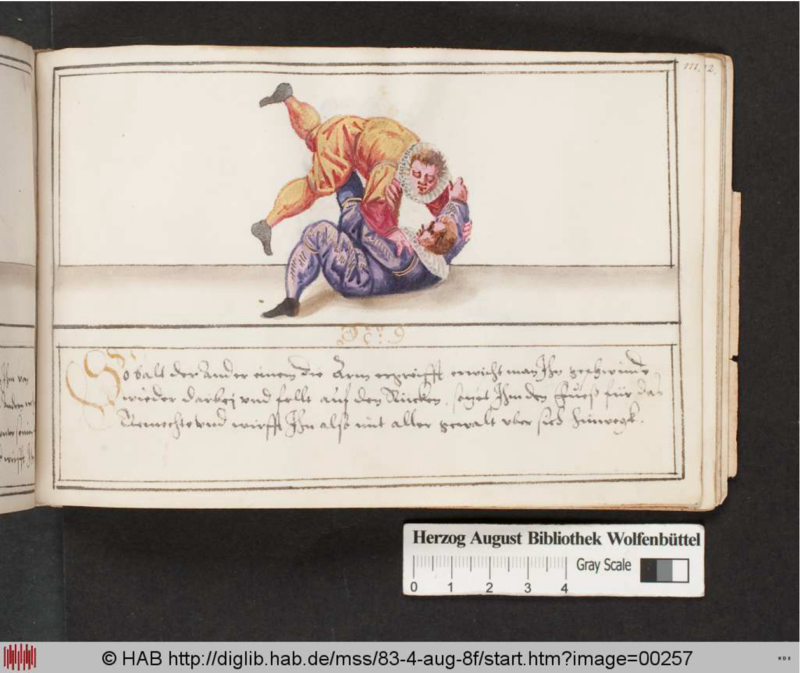 111, 2.
So balt der Ander einem die Arm ergreifft erwischt man Ihn geschwinde
wieder darbej und felt auf den Rücken, setzt Ihm den Fueß für das
Gemechte und wirfft Ihn alß mit aller gewalt vber sich hinwegk.
Herzog August Bibliothek Wolfenbüttel
Gray Scale
0 1 2 3 4
© HAB http://diglib.hab.de/mss/83-4-aug-8f/start.htm?image=00257